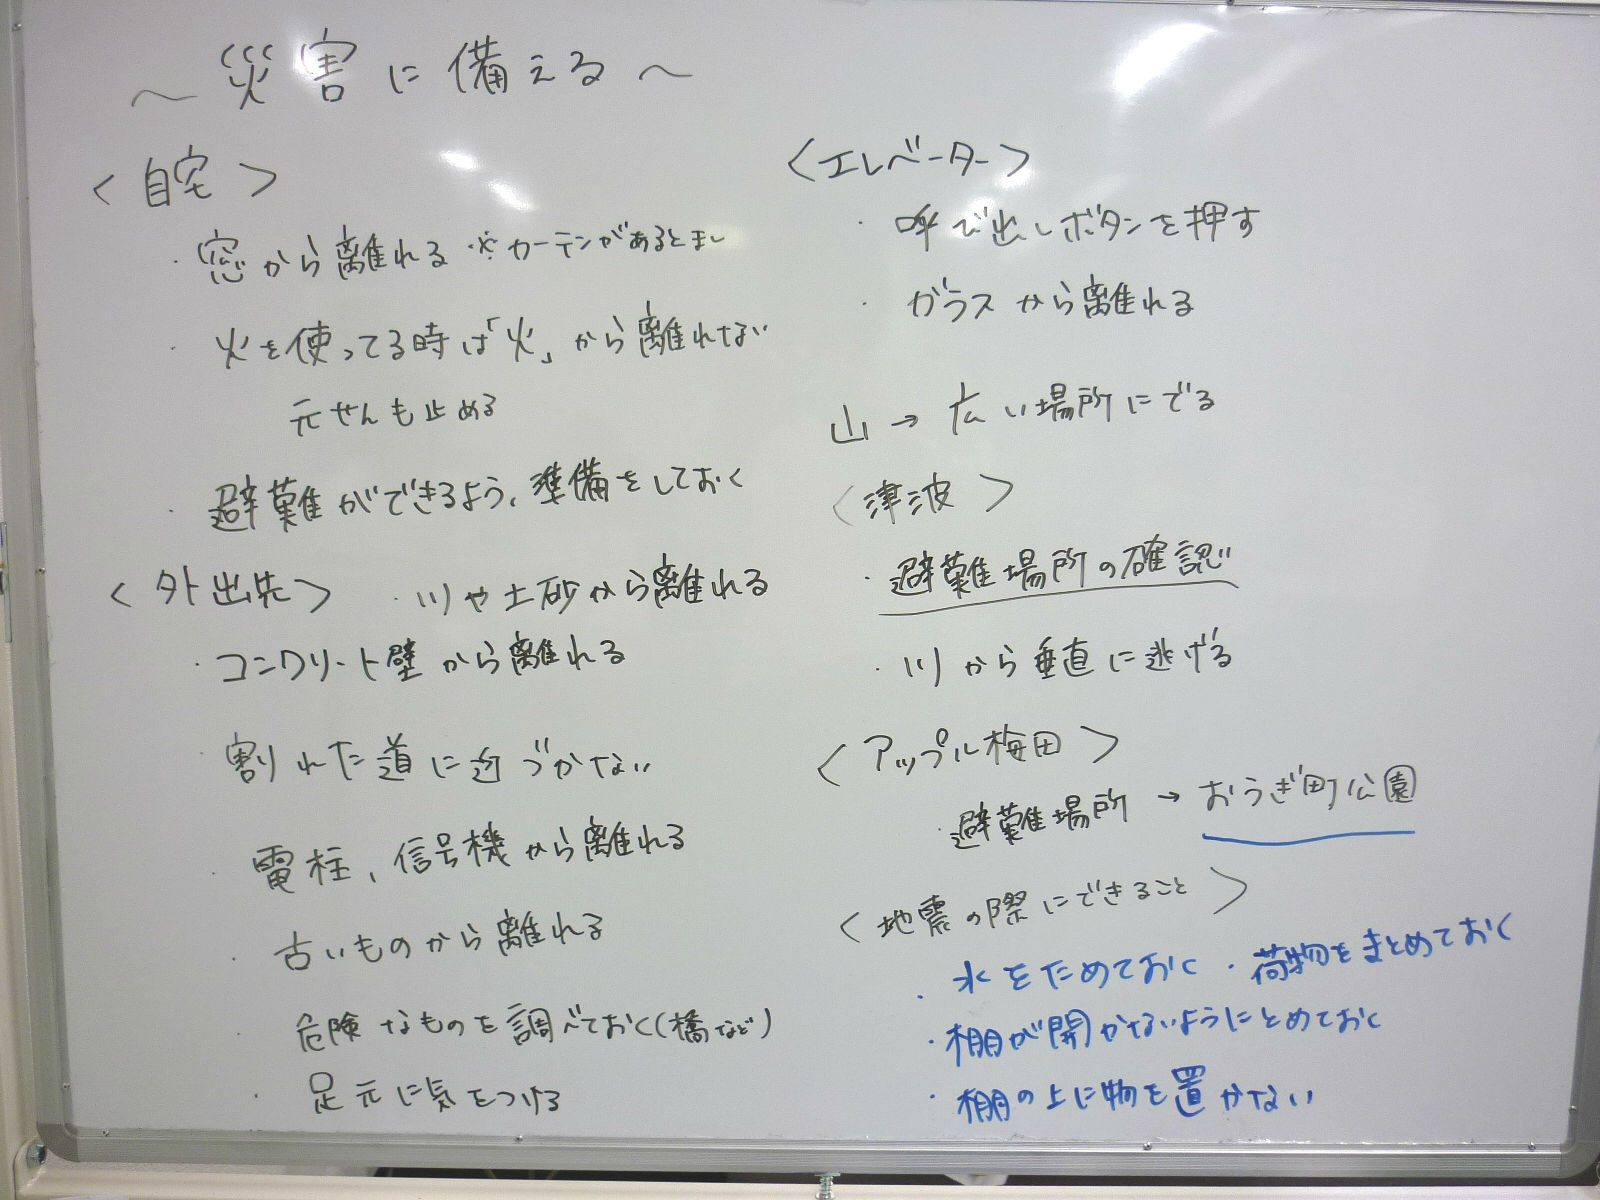 〜災害に備える〜
<自宅>
・窓から離れる ※カーテンがあるとまし
・火を使ってる時は「火」から離れない
元せんも止める
・避難ができるよう、準備をしておく
<外出先> ・川や土砂から離れる
・コンクリート壁から離れる
・割れた道に近づかない
・電柱、信号機から離れる
・古いものから離れる
危険なものを調べておく(橋など)
・足元に気をつける
<エレベーター>
・呼び出しボタンを押す
・ガラスから離れる
山→広い場所にでる
<津波>
・避難場所の確認
・川から垂直に逃げる
<アップル梅田>
・避難場所→おうぎ町公園
<地震の際にできること>
・水をためておく ・荷物をまとめておく
・棚が開かないようにとめておく
・棚の上に物を置かない